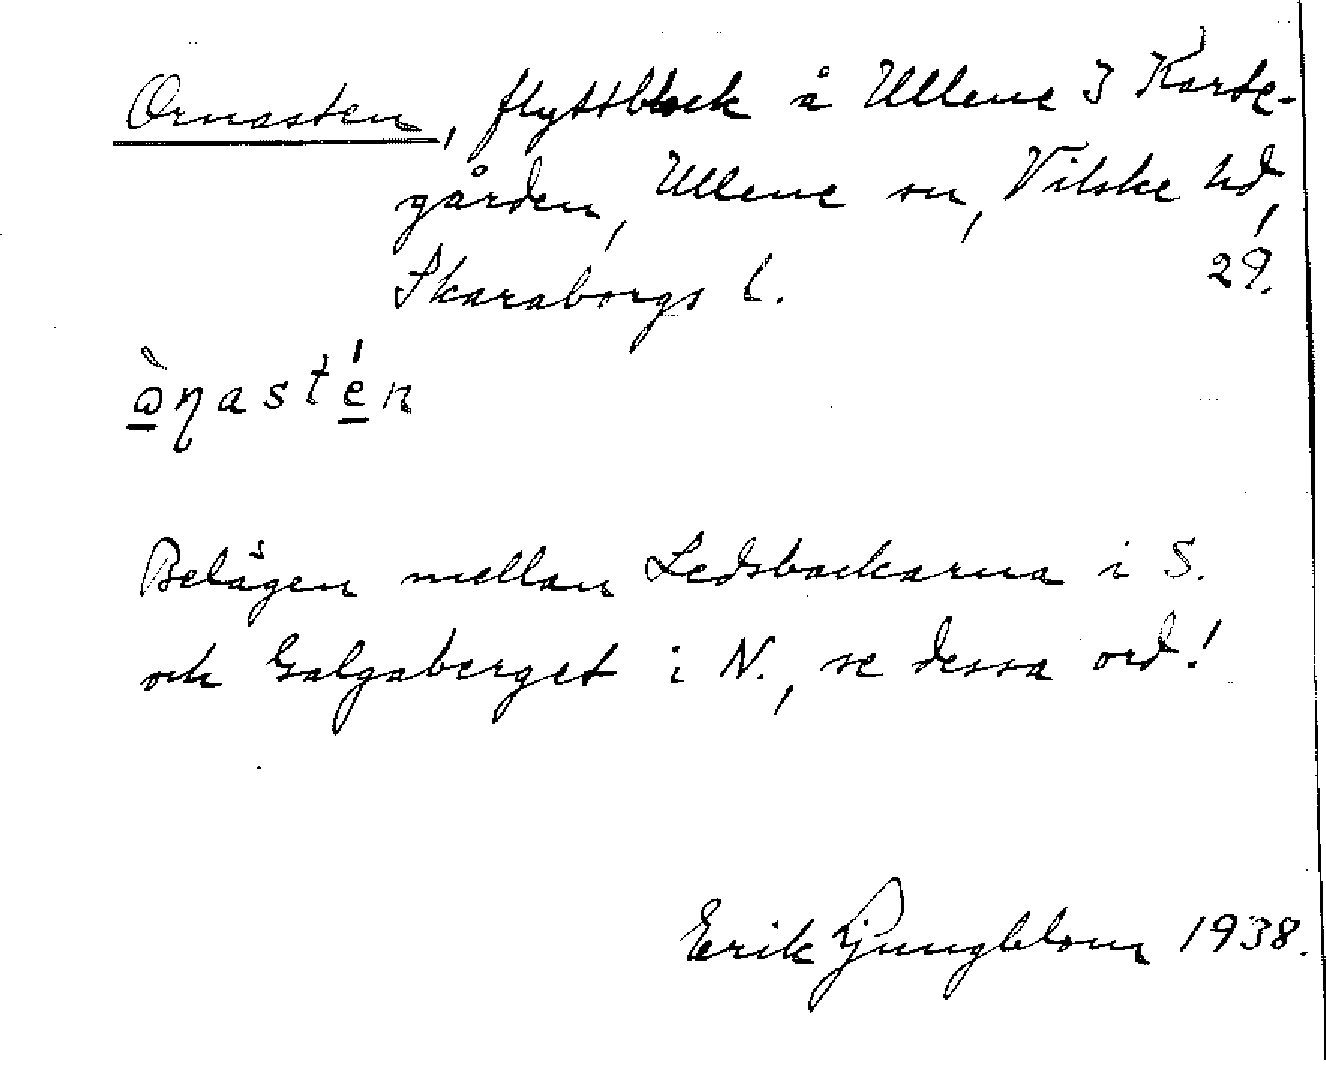 Ornasten, flyttblock å Ullene 3 Korte-
gården, Ullene sn, Vilske hd,
Skaraborgs l. 29.
ònastén
Belägen mellan Ledsbackarna i S.
och Galgaberget i N., se dessa ord!
Erik Ljungblom 1938.